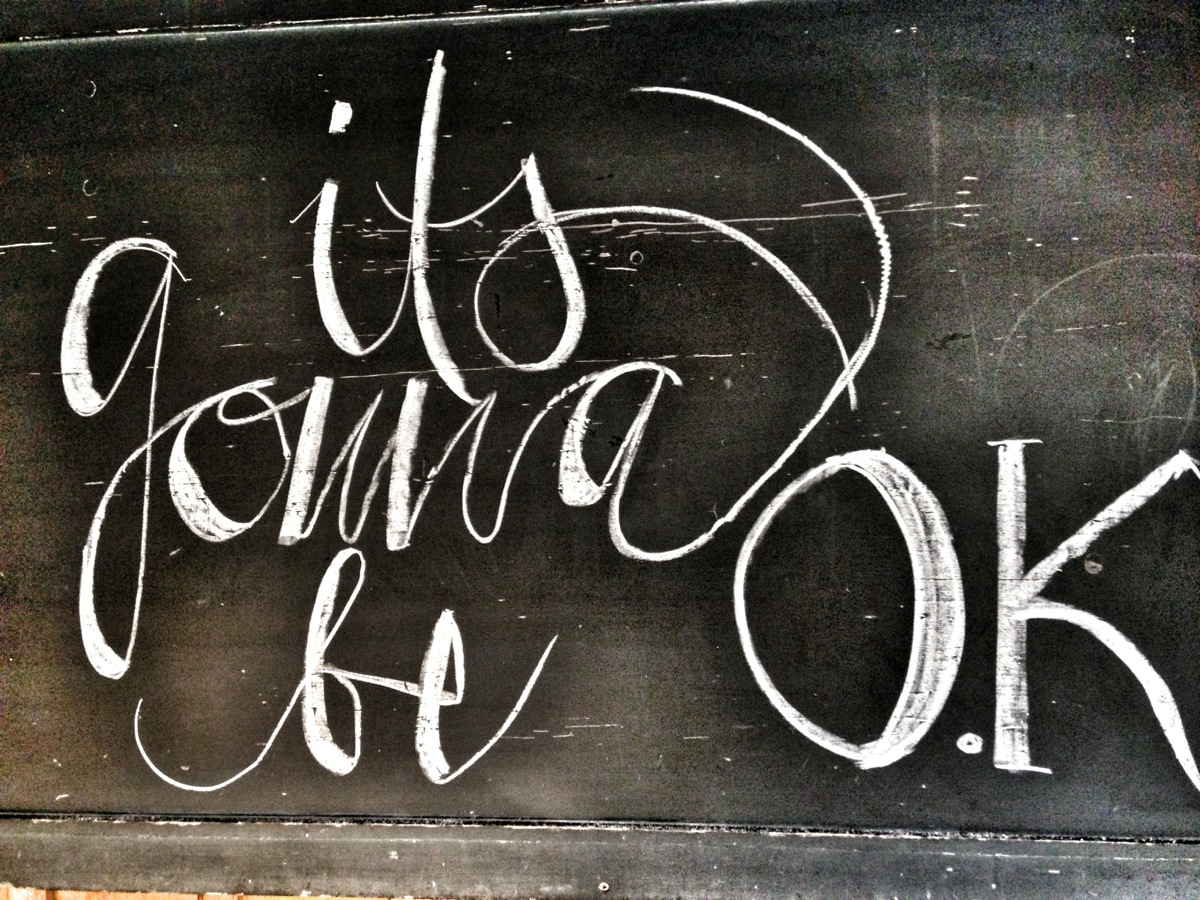 its
gonna
be
O.K